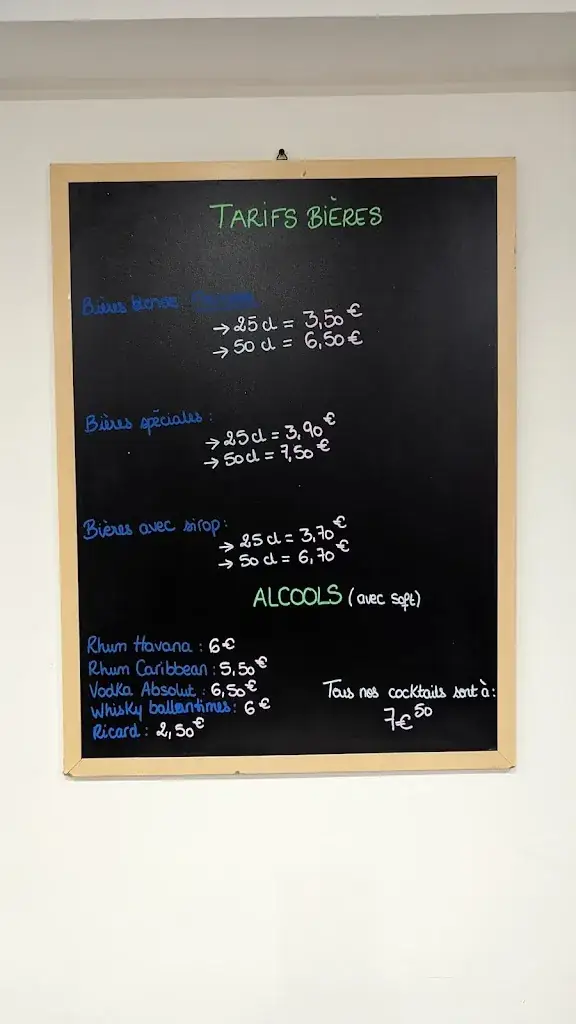 TARIFS BIÈRES
Bières
→ 25 cl = 3,50 €
→ 50 cl = 6,50 €
Bières spéciales :
→ 25 cl = 3,90 €
→ 50 cl = 7,50 €
Bières avec sirop :
→ 25 cl = 3,70 €
→ 50 cl = 6,70 €
ALCOOLS (avec soft)
Rhum Havana : 6 €
Rhum Caribbean : 5,50 €
Vodka Absolut : 6,50 €
Whisky ballantimes : 6 €
Ricard : 2,50 €
Tous nos cocktails sont à :
7€50